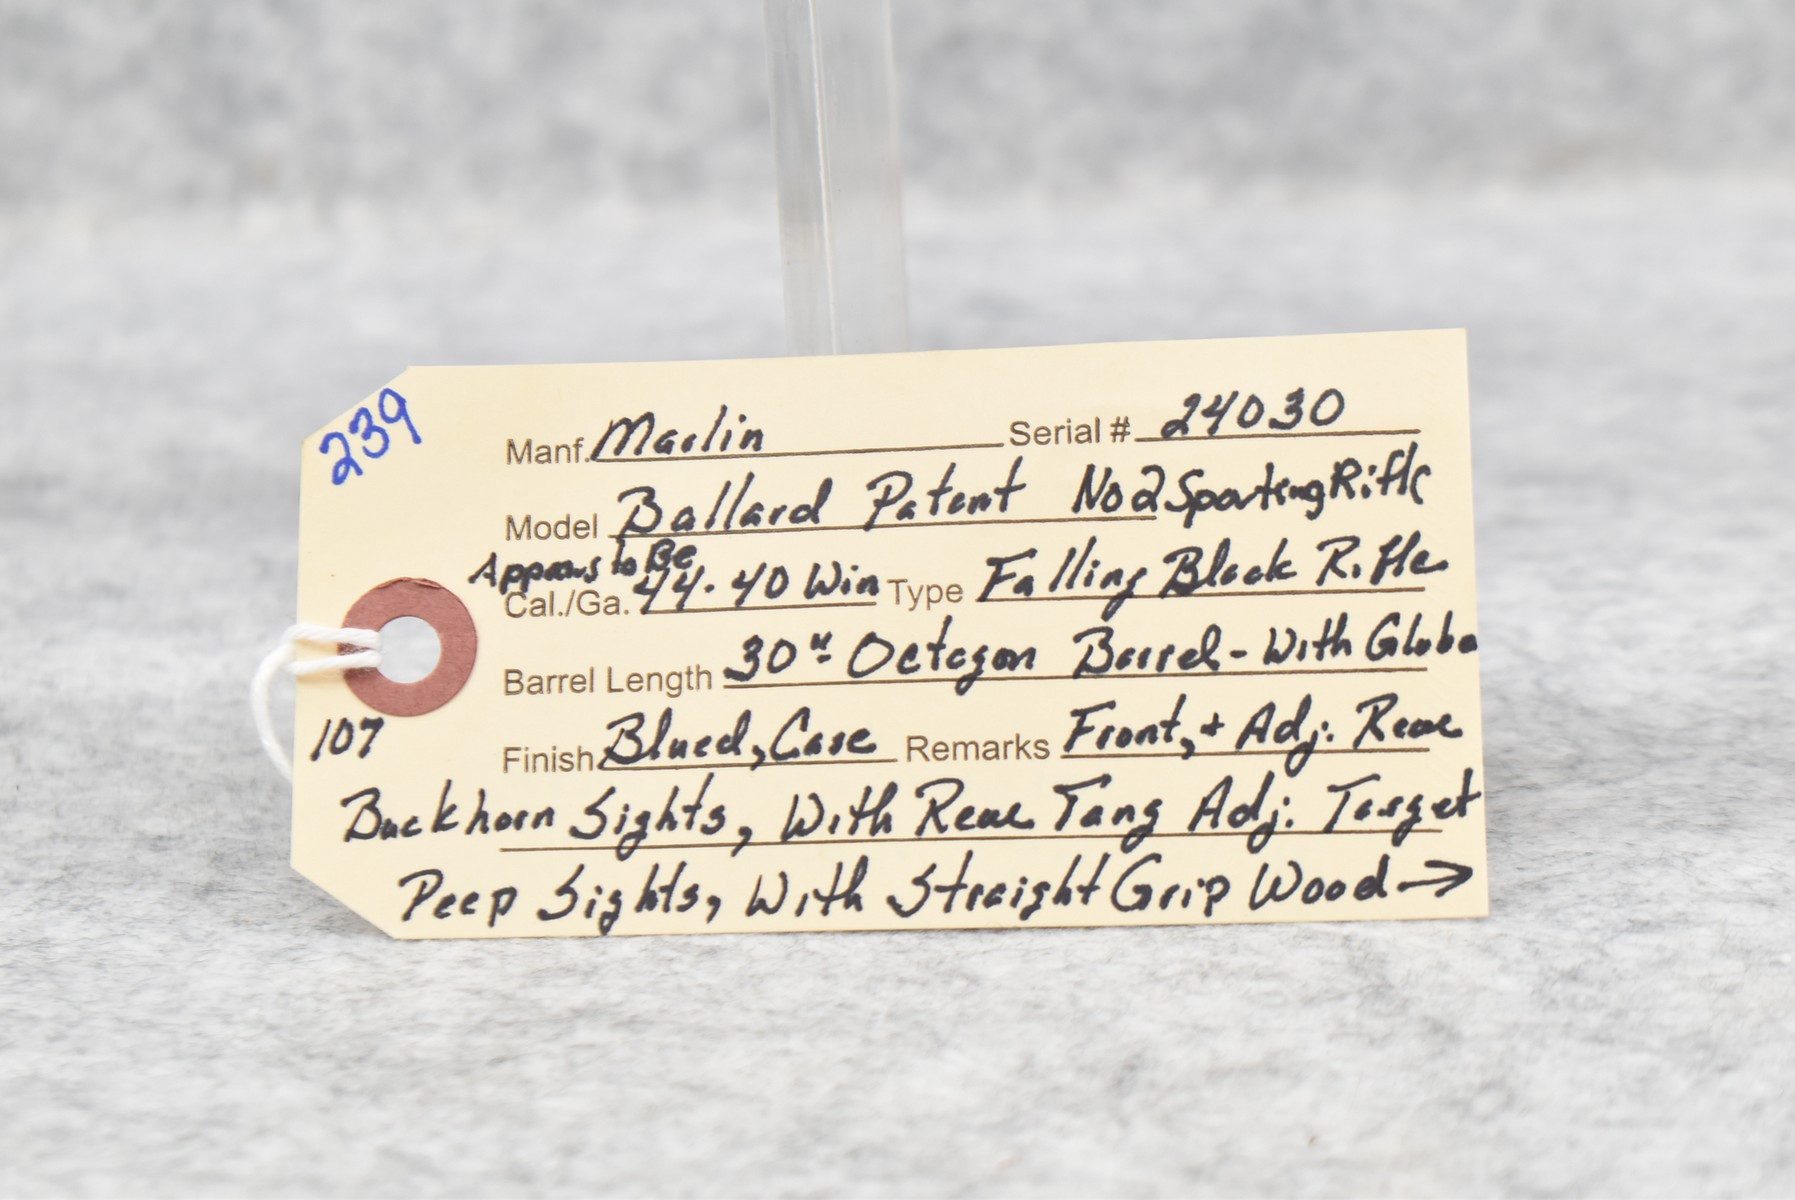 239
Manf. Marlin Serial # 24030
Model Ballard Patent No 2 Sporting Rifle
Appears to Be
Cal./Ga. 44-40 Win Type Falling Block Rifle
Barrel Length 30" Octagon Barrel - With Globe
107
Finish Blued, Case Remarks Front, + Adj. Rear
Buckhorn Sights, With Rear Tang Adj. Target
Peep Sights, With Straight Grip Wood →